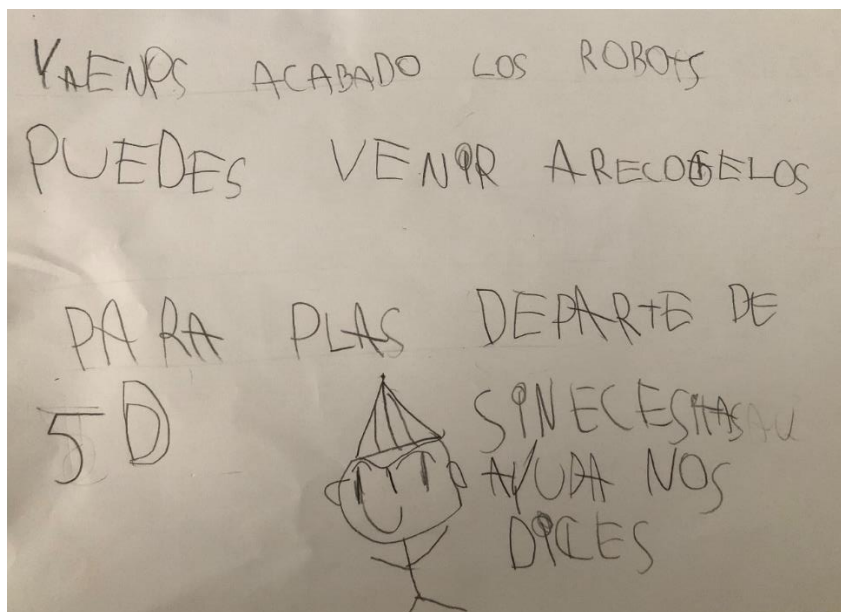 YAENOS ACABADO LOS ROBOTS
PUEDES VENIR ARECOGELOS
PARA PLAS DEPARTE DE
5D
SINECESITAS
AYUDA NOS
DICES